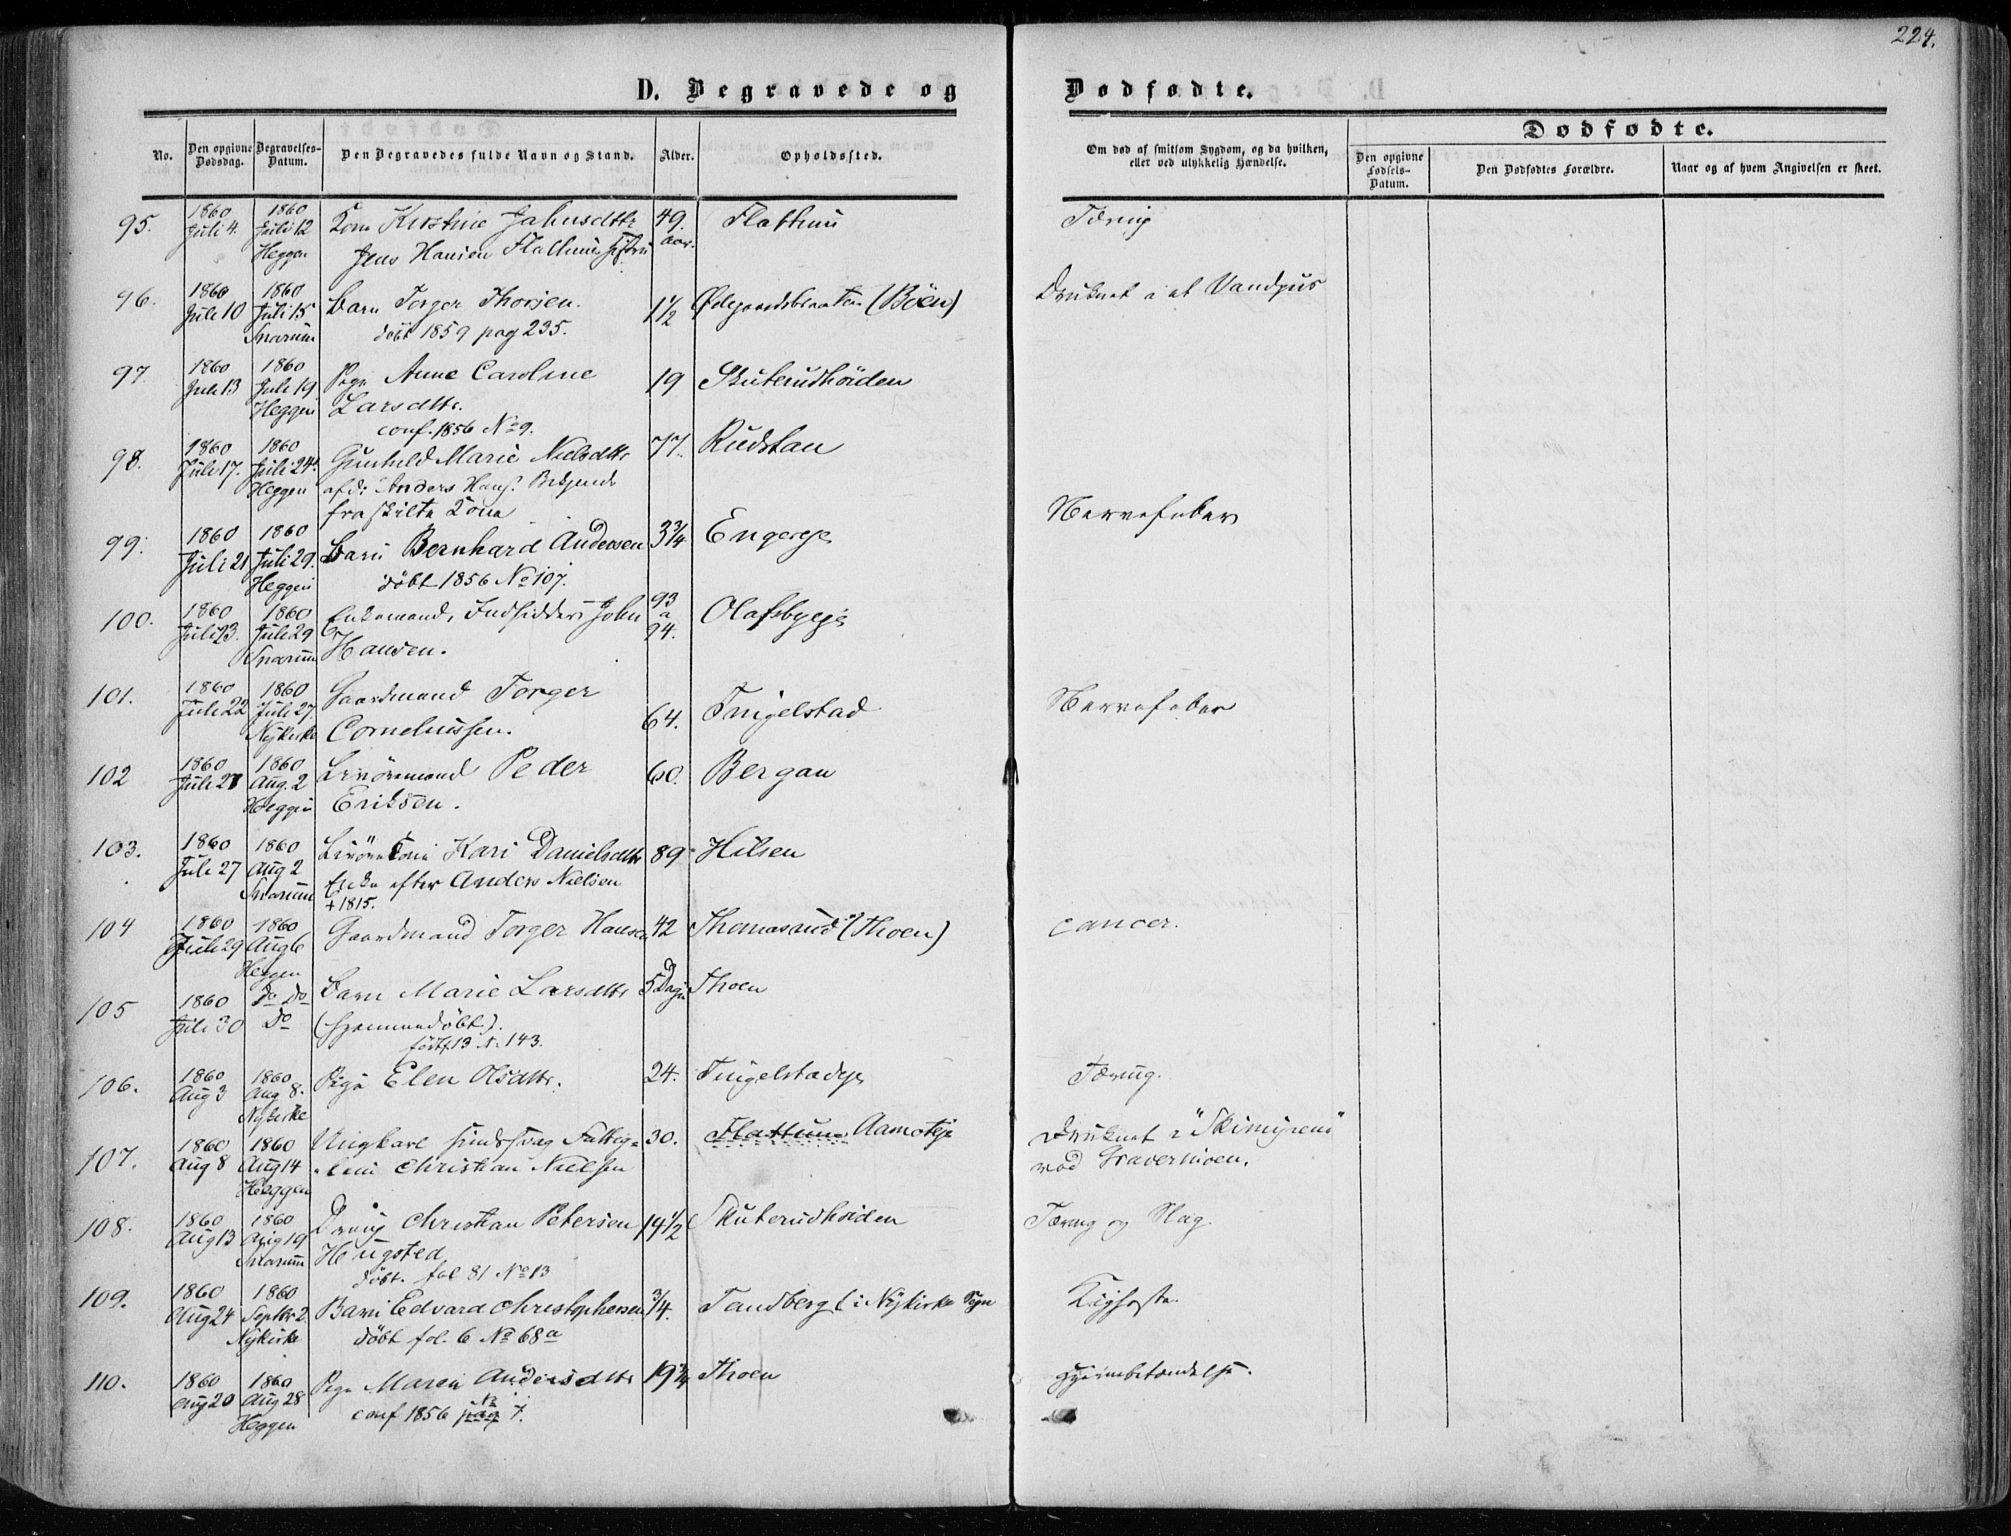 224.
D. Begravede og Dødfødte.
Dødfødte.
No.
Den opgivne Dødsdag.
Begravelses-Datum.
Den Begravedes fulde Navn og Stand.
Alder.
Opholdssted.
Om død af smitsom Sygdom, og da hvilken, eller ved ulykkelig Hændelse.
Den opgivne Fødsels-Datum.
Den Dødfødtes Forældre.
Naar og af hvem Angivelsen er skeet.
95. 1860 Juli 4. 1860 Juli 12 Heggen Kone Kirstine Jahnsdttr 49 aar. Flattum Tæring
Jens Hansen Flattum
96. 1860 Juli 10 1860 Juli 15 Snarum Barn Torger Thorsen. 1 1/2 Ødegaardsbraaten (Böen) Druknet i et Vandpus
døbt 1859 pag 235.
97 1860 Juli 13 1860 Juli 19. Heggen Pige Anne Caroline 19 Skuterudhöiden
Larsdttr.
conf. 1856 No 9.
98. 1860 Juli 17. 1860 Juli 24. Heggen Gunhild Marie Nielsdttr 77. Rudstan
afd: Anders Hans.
fraskilte Kone
99. 1860 Juli 21 1860 Juli 29. Heggen Barn Bernhard Andersen 3 3/4 Engereje Nervefeber
døbt 1856 No 107.
100. 1860 Juli 23. 1860 Juli 29 Snarum Enkemand, Indsidder John 93 a 94. Olafsbyeje
Hansen.
101. 1860 Juli 22 1860 Juli 27. Nykirke Gaardmand Torger 64. Tingelstad Nervefeber
Corneliussen.
102 1860 Juli 27 1860 Aug. 2 Heggen Livöremand Peder 60. Bergan
Eriksen.
103. 1860 Juli 27 1860 Aug 2 Snarum Livörekone Kari Danielsdttr 89 Hilsen
Enke efter Anders Nielsen
+ 1815.
104 1860 Juli 29 1860 Aug 6 Heggen Gaardmand Torger Hansen 42 Thomasrud (Thoen) cancer.
105 1860 Juli 30 Do Do Do Barn Marie Larsdttr 5 Dage Thoen
(hjemmedøbt).
født f. 13 N. 143.
106. 1860 Aug 3 1860 Aug 8. Nykirke Pige Elen Olsdttr. 24. Tingelstadeje Tæring.
107. 1860 Aug 8 1860 Aug 14 Heggen Ungkarl sindssvag Fattig- 30. Flattum Aamoteje Druknet i "Skimyren"
-lem Christian Nielsen ved Gravermoen.
108. 1860 Aug 13 1860 Aug 19 Snarum Dreng Christian Petersen 14 1/2 Skuterudhöiden Tæring og Slag.
Hougsted
døbt. fol 81 No 13
109. 1860 Aug 24 1860 Septbr 2. Nykirke Barn Edvard Christophersen 3/4. Tandberg i Nykirke Sogn Kighoste
døbt fol. 6 No 68a
110. 1860 Aug 20 1860 Aug 28 Heggen Pige Maren Andersdttr 19 3/4 Thoen Hjernebetændelse.
conf 1856 pag No 7.